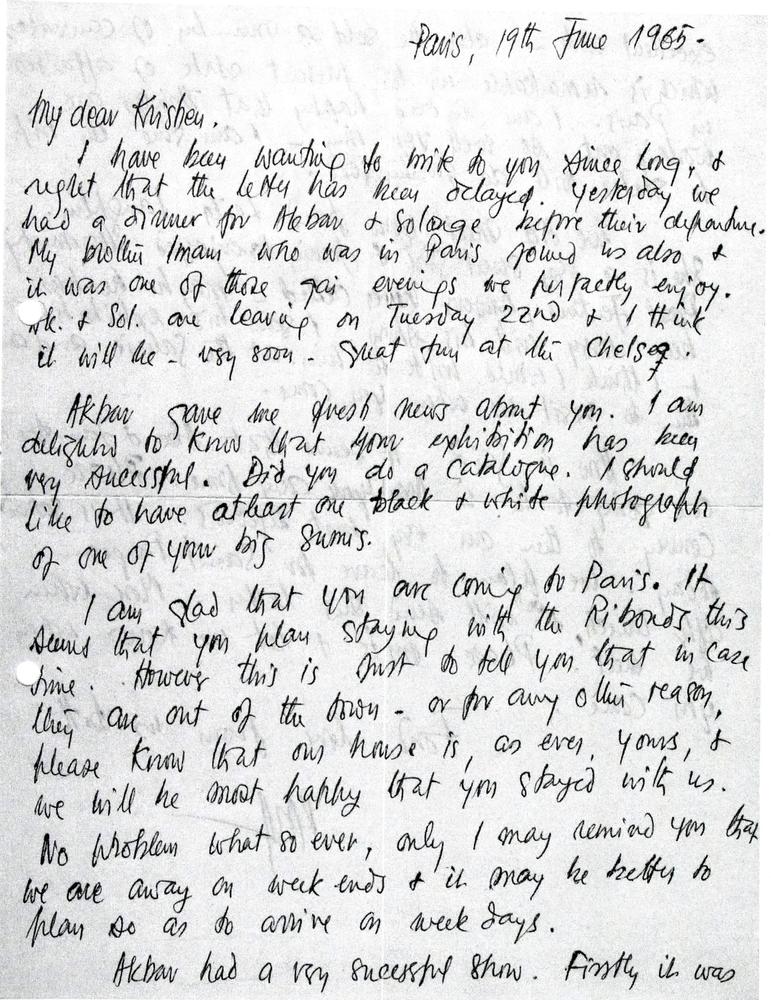 Paris, 19th June 1965.
My dear Krishen.
I have been wanting to write to you since long, &
regret that the letter has been delayed. Yesterday we
had a dinner for Akbar & Solange before their departure.
My brother Imam who was in Paris joined us also &
it was one of those gai evenings we perfectly enjoy.
Ak. & Sol. are leaving on Tuesday 22nd & I think
it will be - very soon - great fun at the Chelsea.
Akbar gave me fresh news about you. I am
delighted to know that your exhibition has been
very sucessful. Did you do a catalogue. I should
like to have atleast one black & white photograph
of one of your big
I am glad that you are coming to Paris. It
seems that you plan staying with the Ribonds this
time. However this is just to tell you that in case
they are out of the town - or for any other reason,
please know that our house is, as ever, yours, &
we will be most happy that you stayed with us.
No problem what so ever, only I may remind you that
we are away on week ends & it may be better to
plan so as to arrive on week days.
Akbar had a very sucessful show. Firstly it was